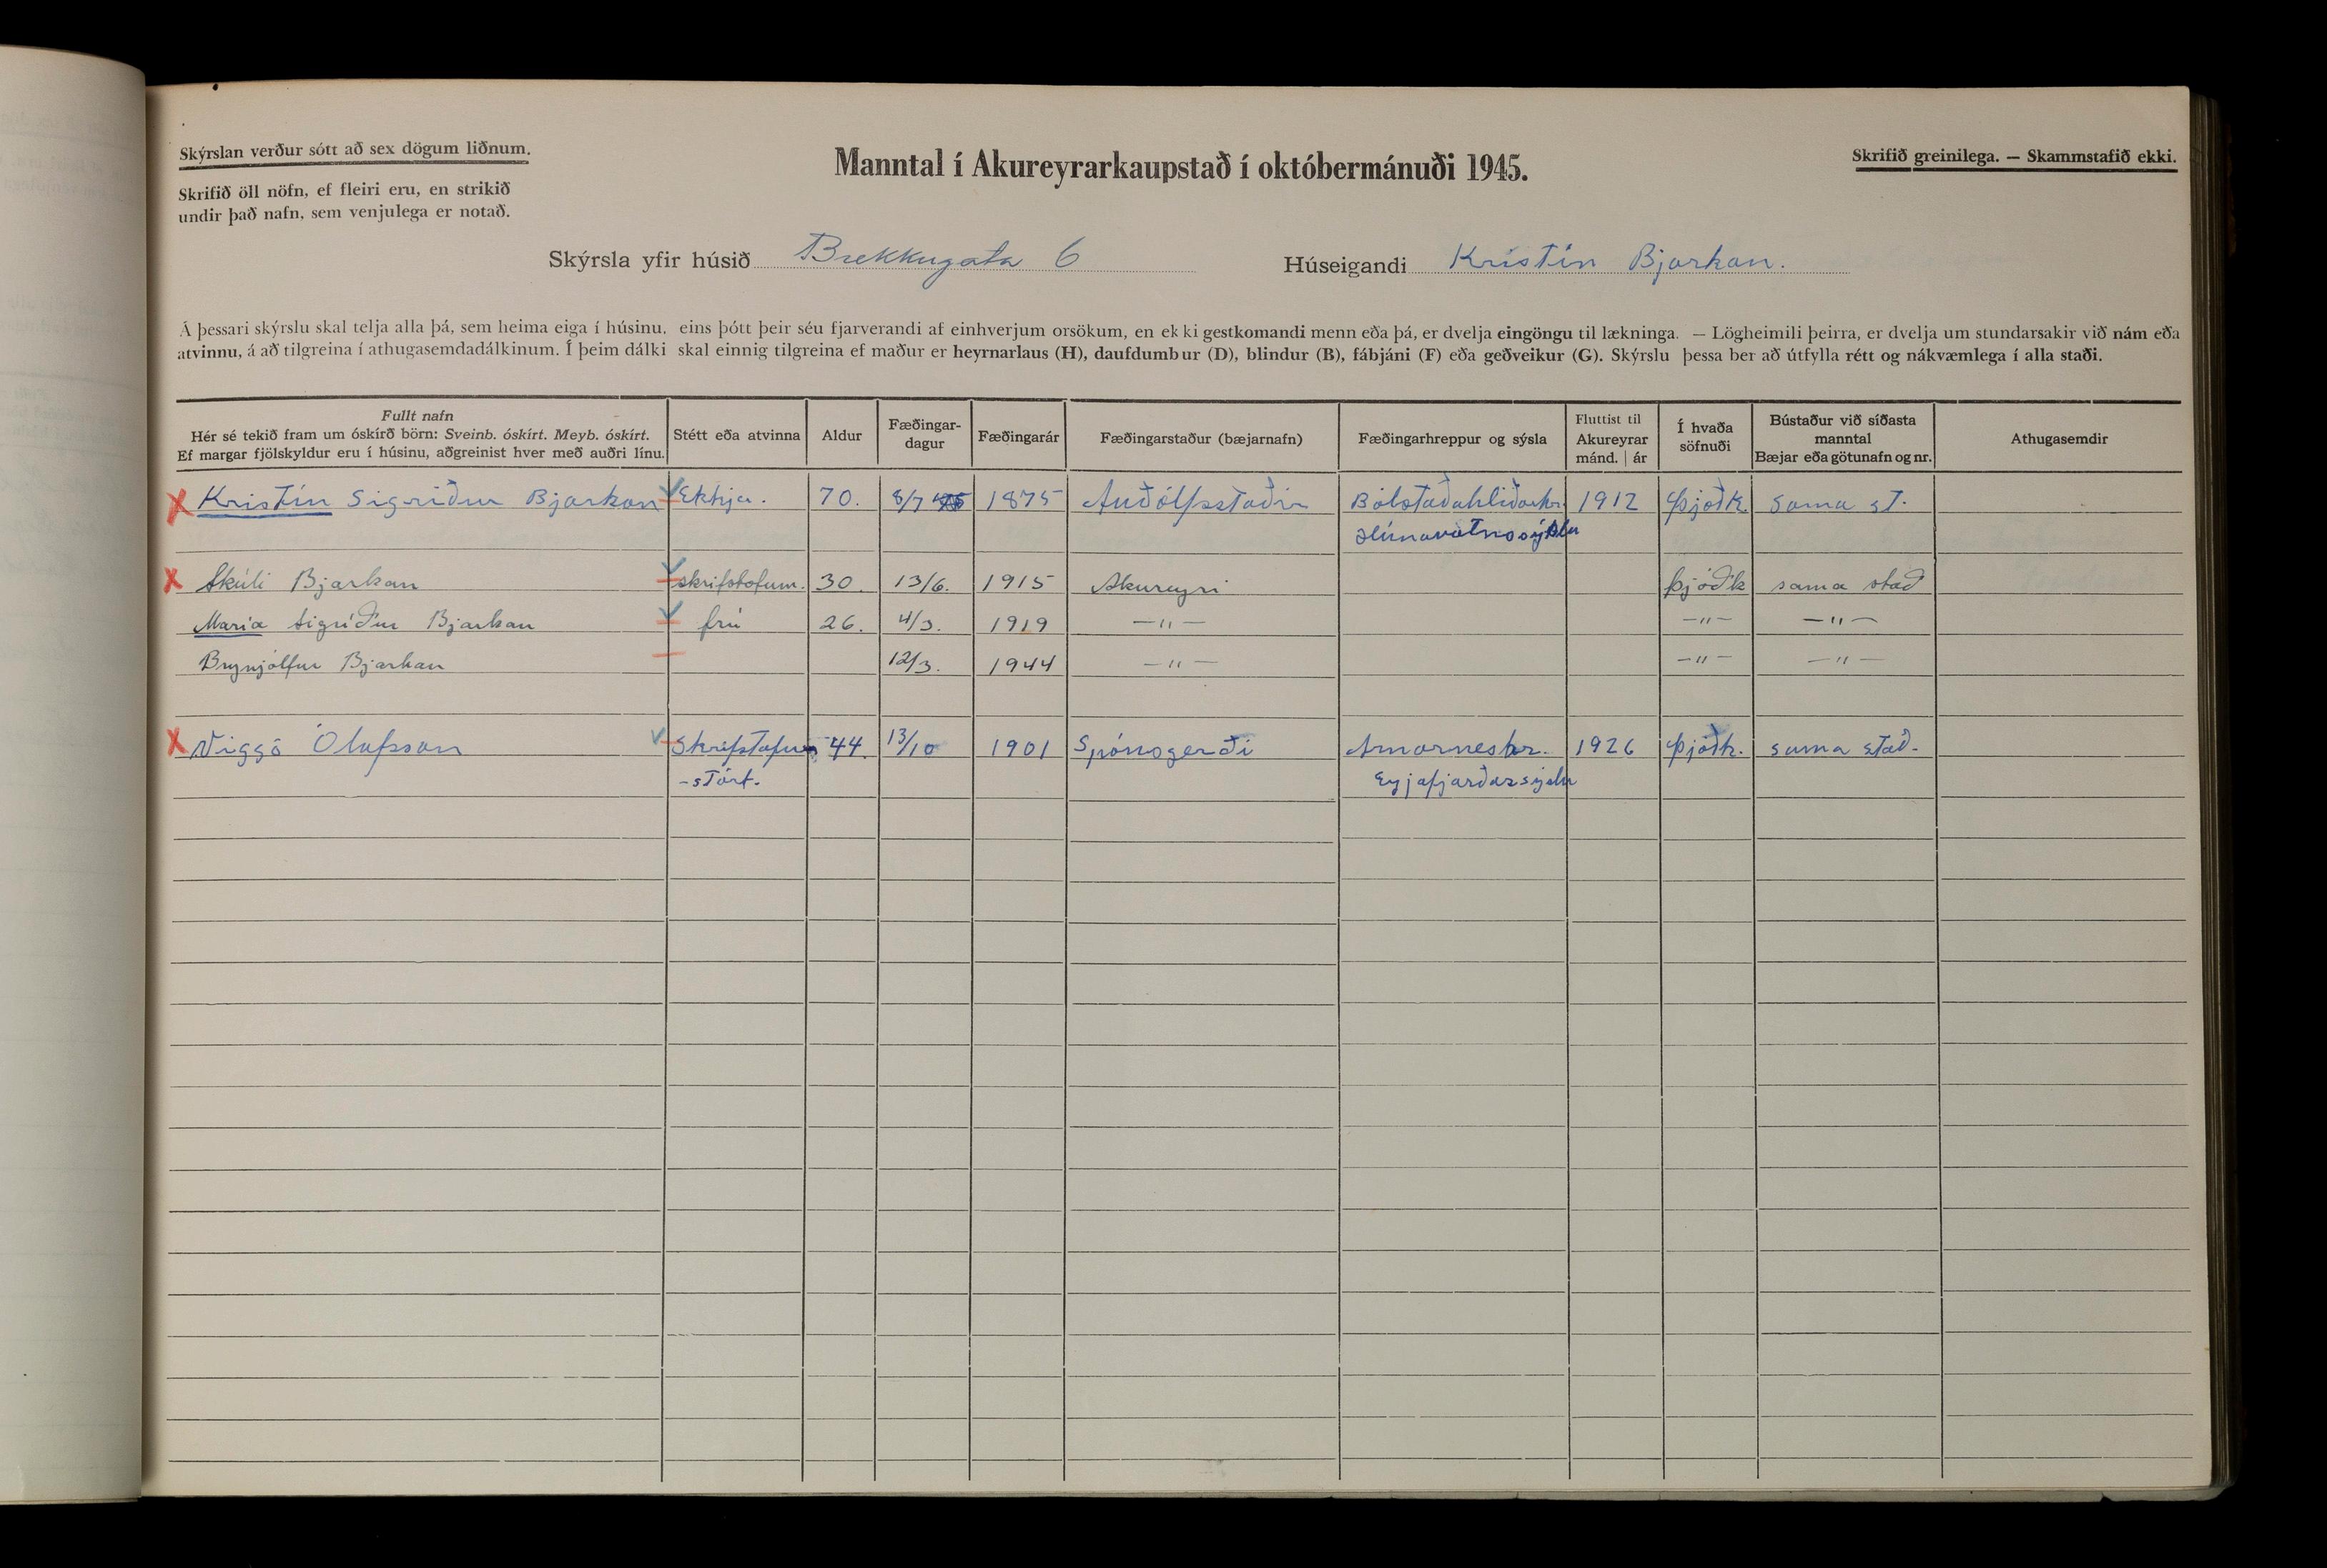 Skýrslan verður sótt að sex dögum liðnum.
Skrifið öll nöfn, ef fleiri eru, en strikið
undir það nafn, sem venjulega er notað.
Manntal í Akureyrarkaupstað í októbermánuði 1945.
Skrifið greinilega. — Skammstafið ekki.
Skýrsla yfir húsið Brekkugata 6 Húseigandi Kristín Bjarkan.
Á þessari skýrslu skal telja alla þá, sem heima eiga í húsinu, eins þótt þeir séu fjarverandi af einhverjum orsökum, en ekki gestkomandi menn eða þá, er dvelja eingöngu til lækninga. — Lögheimili þeirra, er dvelja um stundarsakir við nám eða
atvinnu, á að tilgreina í athugasemdadálkinum. Í þeim dálki skal einnig tilgreina ef maður er heyrnarlaus (H), daufdumbur (D), blindur (B), fábjáni (F) eða geðveikur (G). Skýrslu þessa ber að útfylla rétt og nákvæmlega í alla staði.
Fullt nafn
Hér sé tekið fram um óskírð börn: Sveinb. óskírt. Meyb. óskírt.
Ef margar fjölskyldur eru í húsinu, aðgreinist hver með auðri línu.
Stétt eða atvinna
Aldur
Fæðingar-
dagur
Fæðingarár
Fæðingarstaður (bæjarnafn)
Fæðingarhreppur og sýsla
Fluttist til
Akureyrar
mánd. | ár
Í hvaða
söfnuði
Bústaður við síðasta
manntal
Bæjar eða götunafn og nr.
Athugasemdir
X Kristín Sigríður Bjarkan Ekkja. 70. 8/7 1875 Auðólfsstaðir Bólstaðahlíðarhr. 1912 Þjóðk. Sama st.
Húnavatnssýslu
X Skúli Bjarkan skrifstofum. 30. 13/6. 1915 Akureyri Þjóðk sama stað
María Sigríður Bjarkan frú 26. 4/3. 1919 —"— —"— —"—
Brynjólfur Bjarkan 12/3. 1944 —"— —"— —"—
X Viggó Ólafsson Skrifstofum 44. 13/10 1901 Spónsgerði Arnarneshr. 1926 Þjóðk. sama stað.
-störf. Eyjafjarðarsýslu